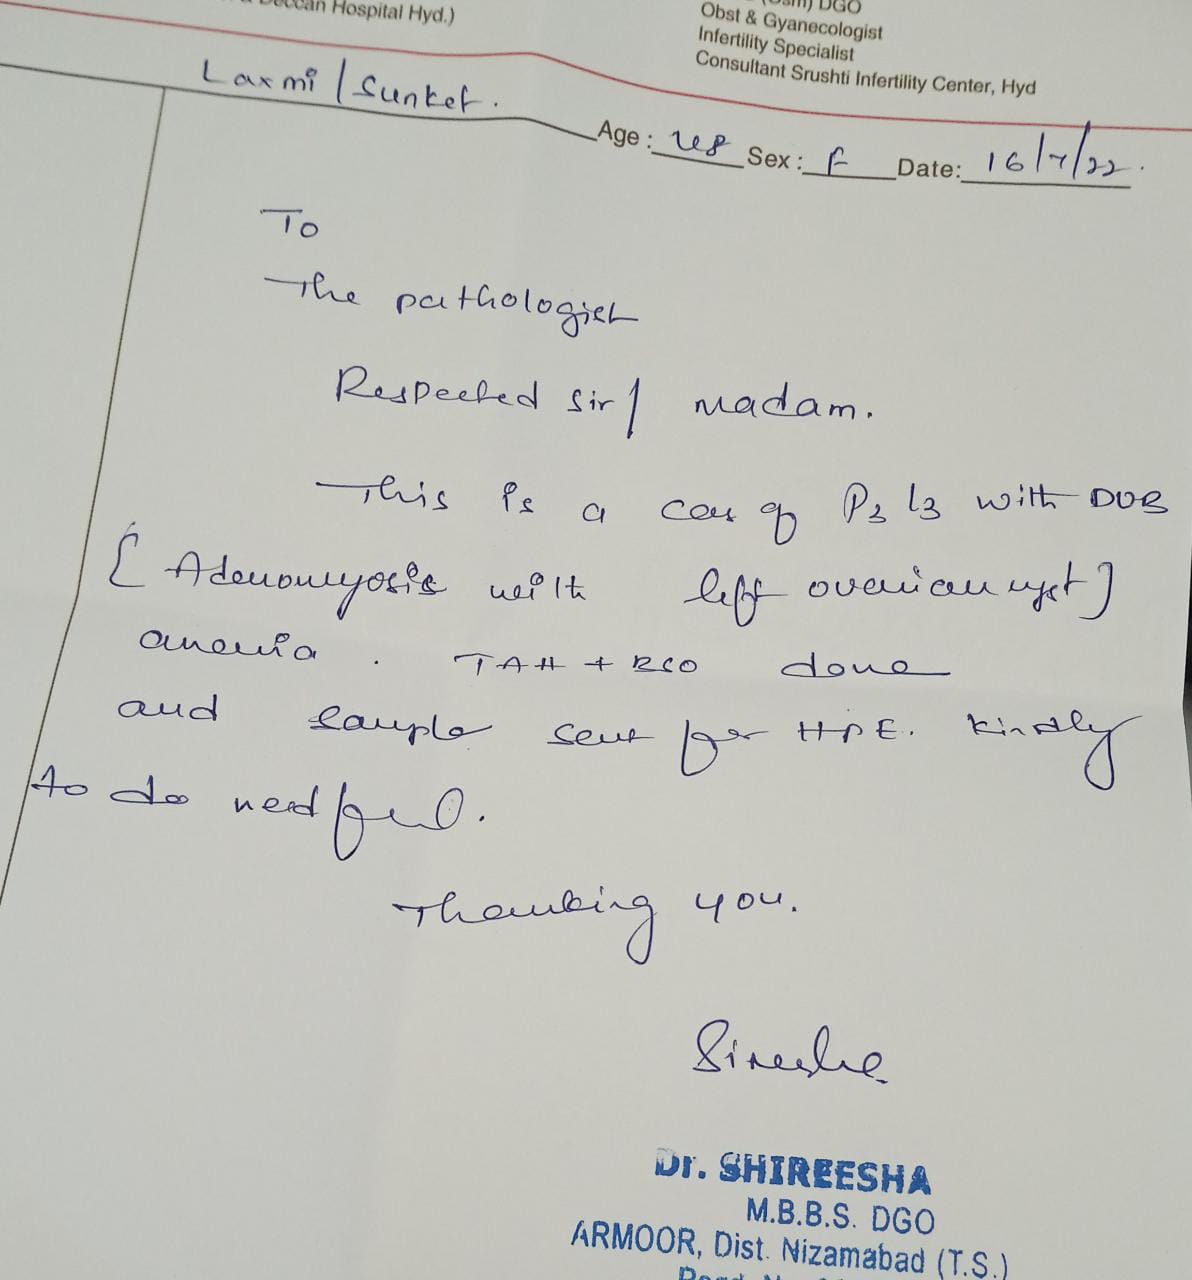 Deccan Hospital Hyd.)
DGO
Obst & Gyanecologist
Infertility Specialist
Consultant Srushti Infertility Center, Hyd
Laxmi / Sunket.
Age: 48 Sex: F Date: 16/7/22.
To
The pathologist
Respected Sir / Madam.
This is a case of P3 L3 with DUB
[Adenomyosis with left ovarian cyst]
anemia. TAH + BSO done
and sample sent for HPE. Kindly
to do needful.
Thanking you.
Sireesha
Dr. SHIREESHA
M.B.B.S. DGO
ARMOOR, Dist. Nizamabad (T.S.)